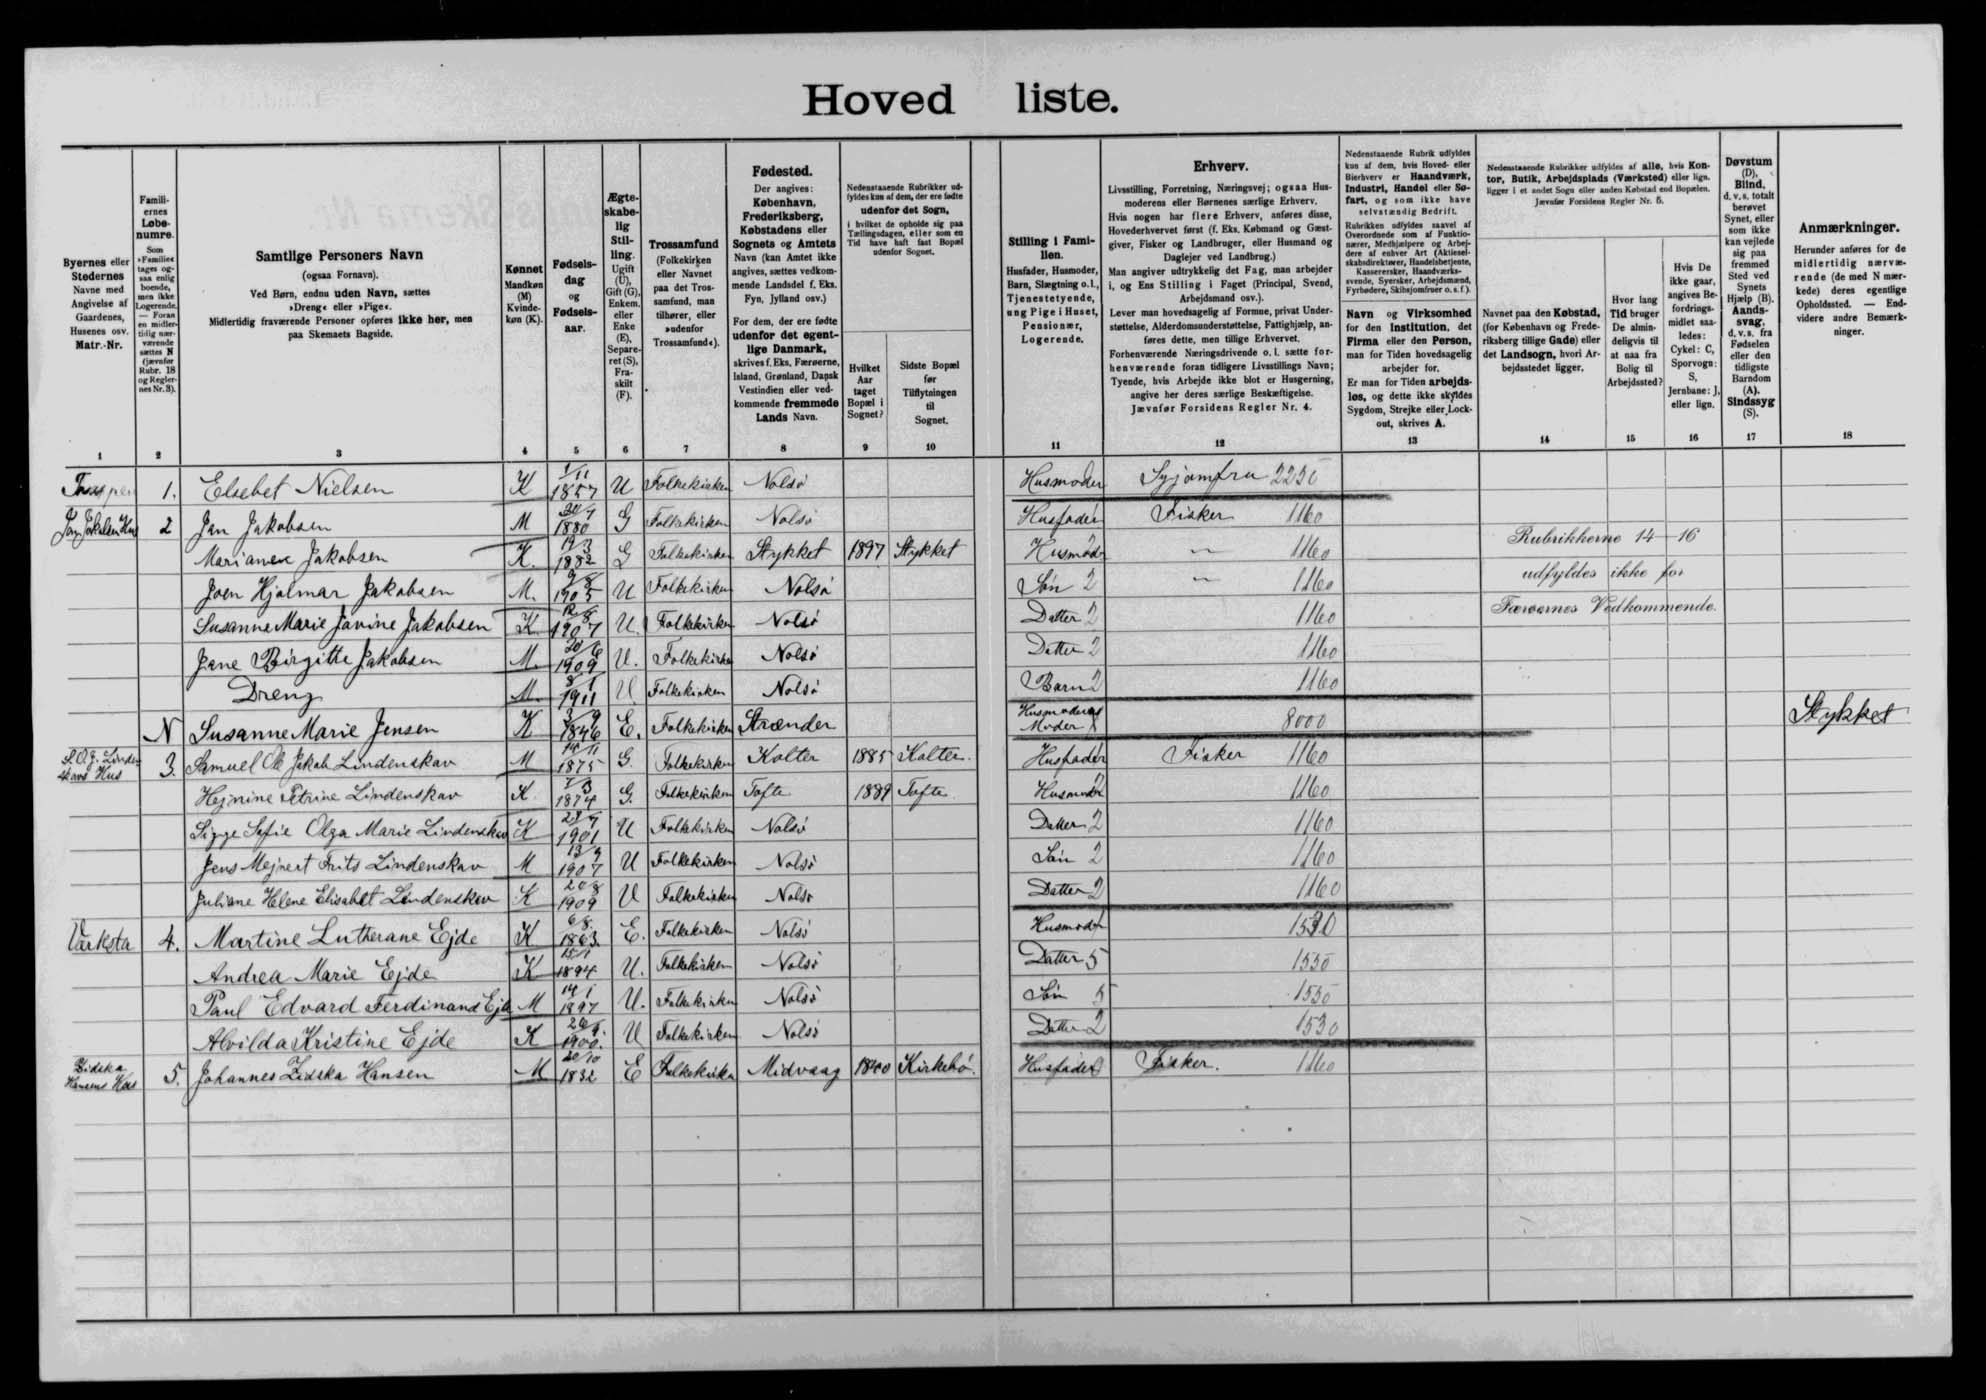 Hoved liste.
Byernes eller Stedernes Navne med Angivelse af Gaardenes, Husenes osv. Matr.-Nr.
Familiernes Løbenumre. Som »Familie« tages ogsaa enlig boende, men ikke Logerende. — Foran en midlertidig nærværende sættes N (jævnfør Rubr. 18 og Reglernes Nr. 3).
Samtlige Personers Navn
(ogsaa Fornavn).
Ved Børn, endnu uden Navn, sættes
»Dreng« eller »Pige«.
Midlertidig fraværende Personer opføres ikke her, men
paa Skemaets Bagside.
Kønnet Mandkøn (M) Kvindekøn (K).
Fødselsdag og Fødselsaar.
Ægteskabelig Stilling. Ugift (U), Gift (G), Enkem. eller Enke (E), Separeret (S), Fraskilt (F).
Trossamfund (Folkekirken eller Navnet paa det Trossamfund, man tilhører, eller »udenfor Trossamfund«).
Fødested.
Der angives: København, Frederiksberg, Købstadens eller Sognets og Amtets Navn (kan Amtet ikke angives, sættes vedkommende Landsdel f. Eks. Fyn, Jylland osv.)
For dem, der ere fødte udenfor det egentlige Danmark, skrives f. Eks. Færøerne, Island, Grønland, Dansk Vestindien eller vedkommende fremmede Lands Navn.
Nedenstaaende Rubrikker udfyldes kun af dem, der ere fødte udenfor det Sogn, i hvilket de opholde sig paa Tællingsdagen, eller som en Tid have haft fast Bopæl udenfor Sognet.
Hvilket Aar taget Bopæl i Sognet?
Sidste Bopæl før Tilflytningen til Sognet.
Stilling i Familien.
Husfader, Husmoder, Barn, Slægtning o.l., Tjenestetyende, ung Pige i Huset, Pensionær, Logerende.
Erhverv.
Livsstilling, Forretning, Næringsvej; ogsaa Husmoderens eller Børnenes særlige Erhverv.
Hvis nogen har flere Erhverv, anføres disse, Hovederhvervet først (f. Eks. Købmand og Gæstgiver, Fisker og Landbruger, eller Husmand og Daglejer ved Landbrug.)
Man angiver udtrykkelig det Fag, man arbejder i, og Ens Stilling i Faget (Principal, Svend, Arbejdsmand osv.).
Lever man hovedsagelig af Formue, privat Understøttelse, Alderdomsunderstøttelse, Fattighjælp, anføres dette, men tillige Erhvervet.
Forhenværende Næringsdrivende o. l. sætte forhenværende foran tidligere Livsstillings Navn; Tyende, hvis Arbejde ikke blot er Husgerning, angive her deres særlige Beskæftigelse.
Jævnfør Forsidens Regler Nr. 4.
Nedenstaaende Rubrik udfyldes kun af dem, hvis Hoved- eller Bierhverv er Haandværk, Industri, Handel eller Søfart, og som ikke have selvstændig Bedrift.
Rubrikken udfyldes saavel af Overordnede som af Funktionærer, Medhjælpere og Arbejdere af enhver Art (Aktieselskabsdirektører, Handelsbetjente, Kasserersker, Haandværkssvende, Syersker, Arbejdsmænd, Fyrbødere, Skibsjomfruer o. s. f.).
Navn og Virksomhed for den Institution, det Firma eller den Person, man for Tiden hovedsagelig arbejder for.
Er man for Tiden arbejdsløs, og dette ikke skyldes Sygdom, Strejke eller Lockout, skrives A.
Nedenstaaende Rubrikker udfyldes af alle, hvis Kontor, Butik, Arbejdsplads (Værksted) eller lign. ligger i et andet Sogn eller anden Købstad end Bopælen. Jævnfør Forsidens Regler Nr. 5.
Navnet paa den Købstad, (for København og Frederiksberg tillige Gade) eller det Landsogn, hvori Arbejdsstedet ligger.
Hvor lang Tid bruger De almindeligvis til at naa fra Bolig til Arbejdssted?
Hvis De ikke gaar, angives Befordringsmidlet saaledes: Cykel: C, Sporvogn: S, Jernbane: J, eller lign.
Døvstum (D), Blind, d. v. s. totalt berøvet Synet, eller som ikke kan vejlede sig paa fremmed Sted ved Synets Hjælp (B). Aandssvag, d. v. s. fra Fødselen eller den tidligste Barndom (A). Sindssyg (S).
Anmærkninger.
Herunder anføres for de midlertidig nærværende (de med N mærkede) deres egentlige Opholdssted. — Endvidere andre Bemærkninger.
1 2 3 4 5 6 7 8 9 10 11 12 13 14 15 16 17 18
1. Elsebet Nielsen K 1/11 1857 U Folkekirken Nolsø Husmoder Syjomfru 2250
Jan Jakobsen Hus 2 Jan Jakobsen M 1880 G Folkekirken Nolsø Husfader Fisker 1160
Jakobsen K. 19/3 1882 G Folkekirken Stykket 1897 Stykket Husmoder " 1160 Rubrikkerne 14-16
Joen Hjalmar Jakobsen M. 9/8 1905 U Folkekirken Nolsø Søn 2 " 1160 udfyldes ikke for
Susanne Marie Javine Jakobsen K. 1907 U. Folkekirken Nolsø Datter 2 1160 Færøernes Vedkommende.
Jane Birgitte Jakobsen M. 20/6 1909 U. Folkekirken Nolsø Datter 2 1160
Dreng M 8/1 1911 U Folkekirken Nolsø Barn 2 1160
N Susanne Marie Jensen K 3/9 1846 E. Folkekirken Strænder Husmoderens Moder 8000 Stykket
S. O. J. Lindenskovs Hus 3. Samuel Ole Jakob Lindenskov M 14/11 1875 G. Folkekirken Kolter 1885 Kolter. Husfader Fisker 1160
Hejnine Petrine Lindenskov K 7/3 1874 G. Folkekirken Tofte 1889 Tofte Husmoder 1160
Sigge Sofie Olga Marie Lindenskov K 23/7 1901 U Folkekirken Nolsø Datter 2 1160
Jens Mejnert Frits Lindenskov M 13/9 1907 U Folkekirken Nolsø Søn 2 1160
Juliane Helene Elisabet Lindenskov K 20/8 1909 U Folkekirken Nolsø Datter 2 1160
Varksta 4. Martine Lutherane Ejde K 6/8 1863. E. Folkekirken Nolsø Husmoder 1530
Andrea Marie Ejde K 15/1 1894. U. Folkekirken Nolsø Datter 5 1530
Paul Edvard Ferdinand Ejde M 14/1 1897 U. Folkekirken Nolsø Søn 5 1530
Alvilda Kristine Ejde K 1900. U Folkekirken Nolsø Datter 2 1530
Zidska Hansens Hus 5. Johannes Zidska Hansen M 20/10 1832 E Folkekirken Midvaag Kirkebø. Husfader Fisker. 1160